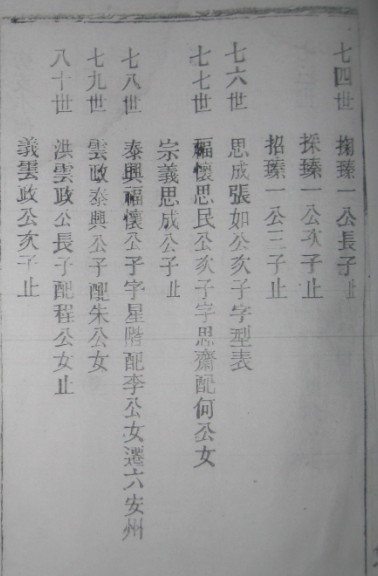 七四世 掬瑧一公長子止
採瑧一公次子止
招瑧一公三子止
七六世 思成張如公次子字型表
七七世 福懷思民公次子字思齋配何公女
宗義思成公子止
七八世 泰興福懷公子字星階配李公女遷六安州
七九世 雲政泰興公子配朱公女
八十世 洪雲政公長子配程公女止
義雲政公次子止